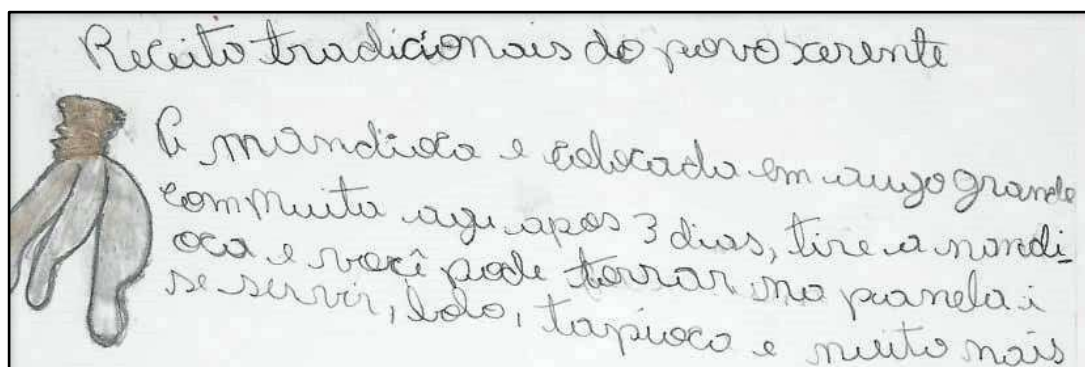 Receito tradicionais do povo xerente
A mandioca e colocada em augo grande
com muita agu apos 3 dias, tire a nandi_
oca e você pode torrar, na panela i
se servir, bolo, tapioca e muito mais